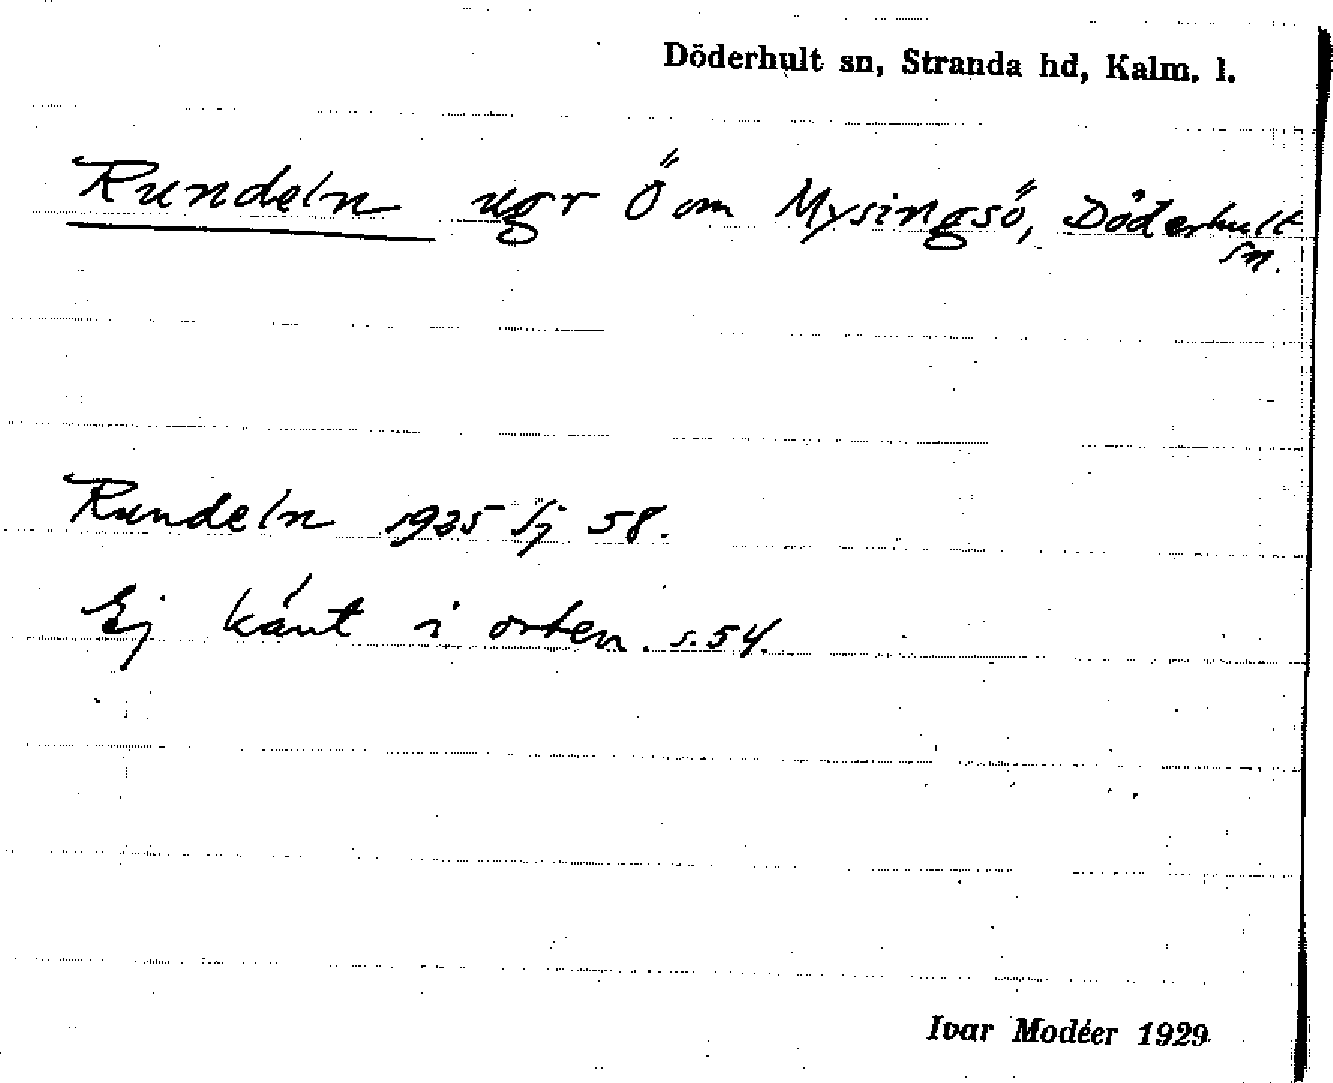 Döderhult sn, Stranda hd, Kalm. l.
Rundeln ugr Ö om Mysingsö, Döderhult
sn.
Rundeln 1925 Sj 58.
Ej känt i orten. s. 54.
Ivar Modéer 1929